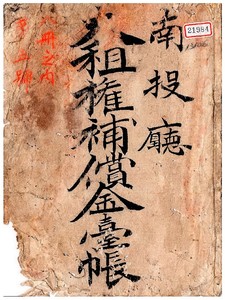 21984
南投廳
大租權補償金臺帳
八冊之內